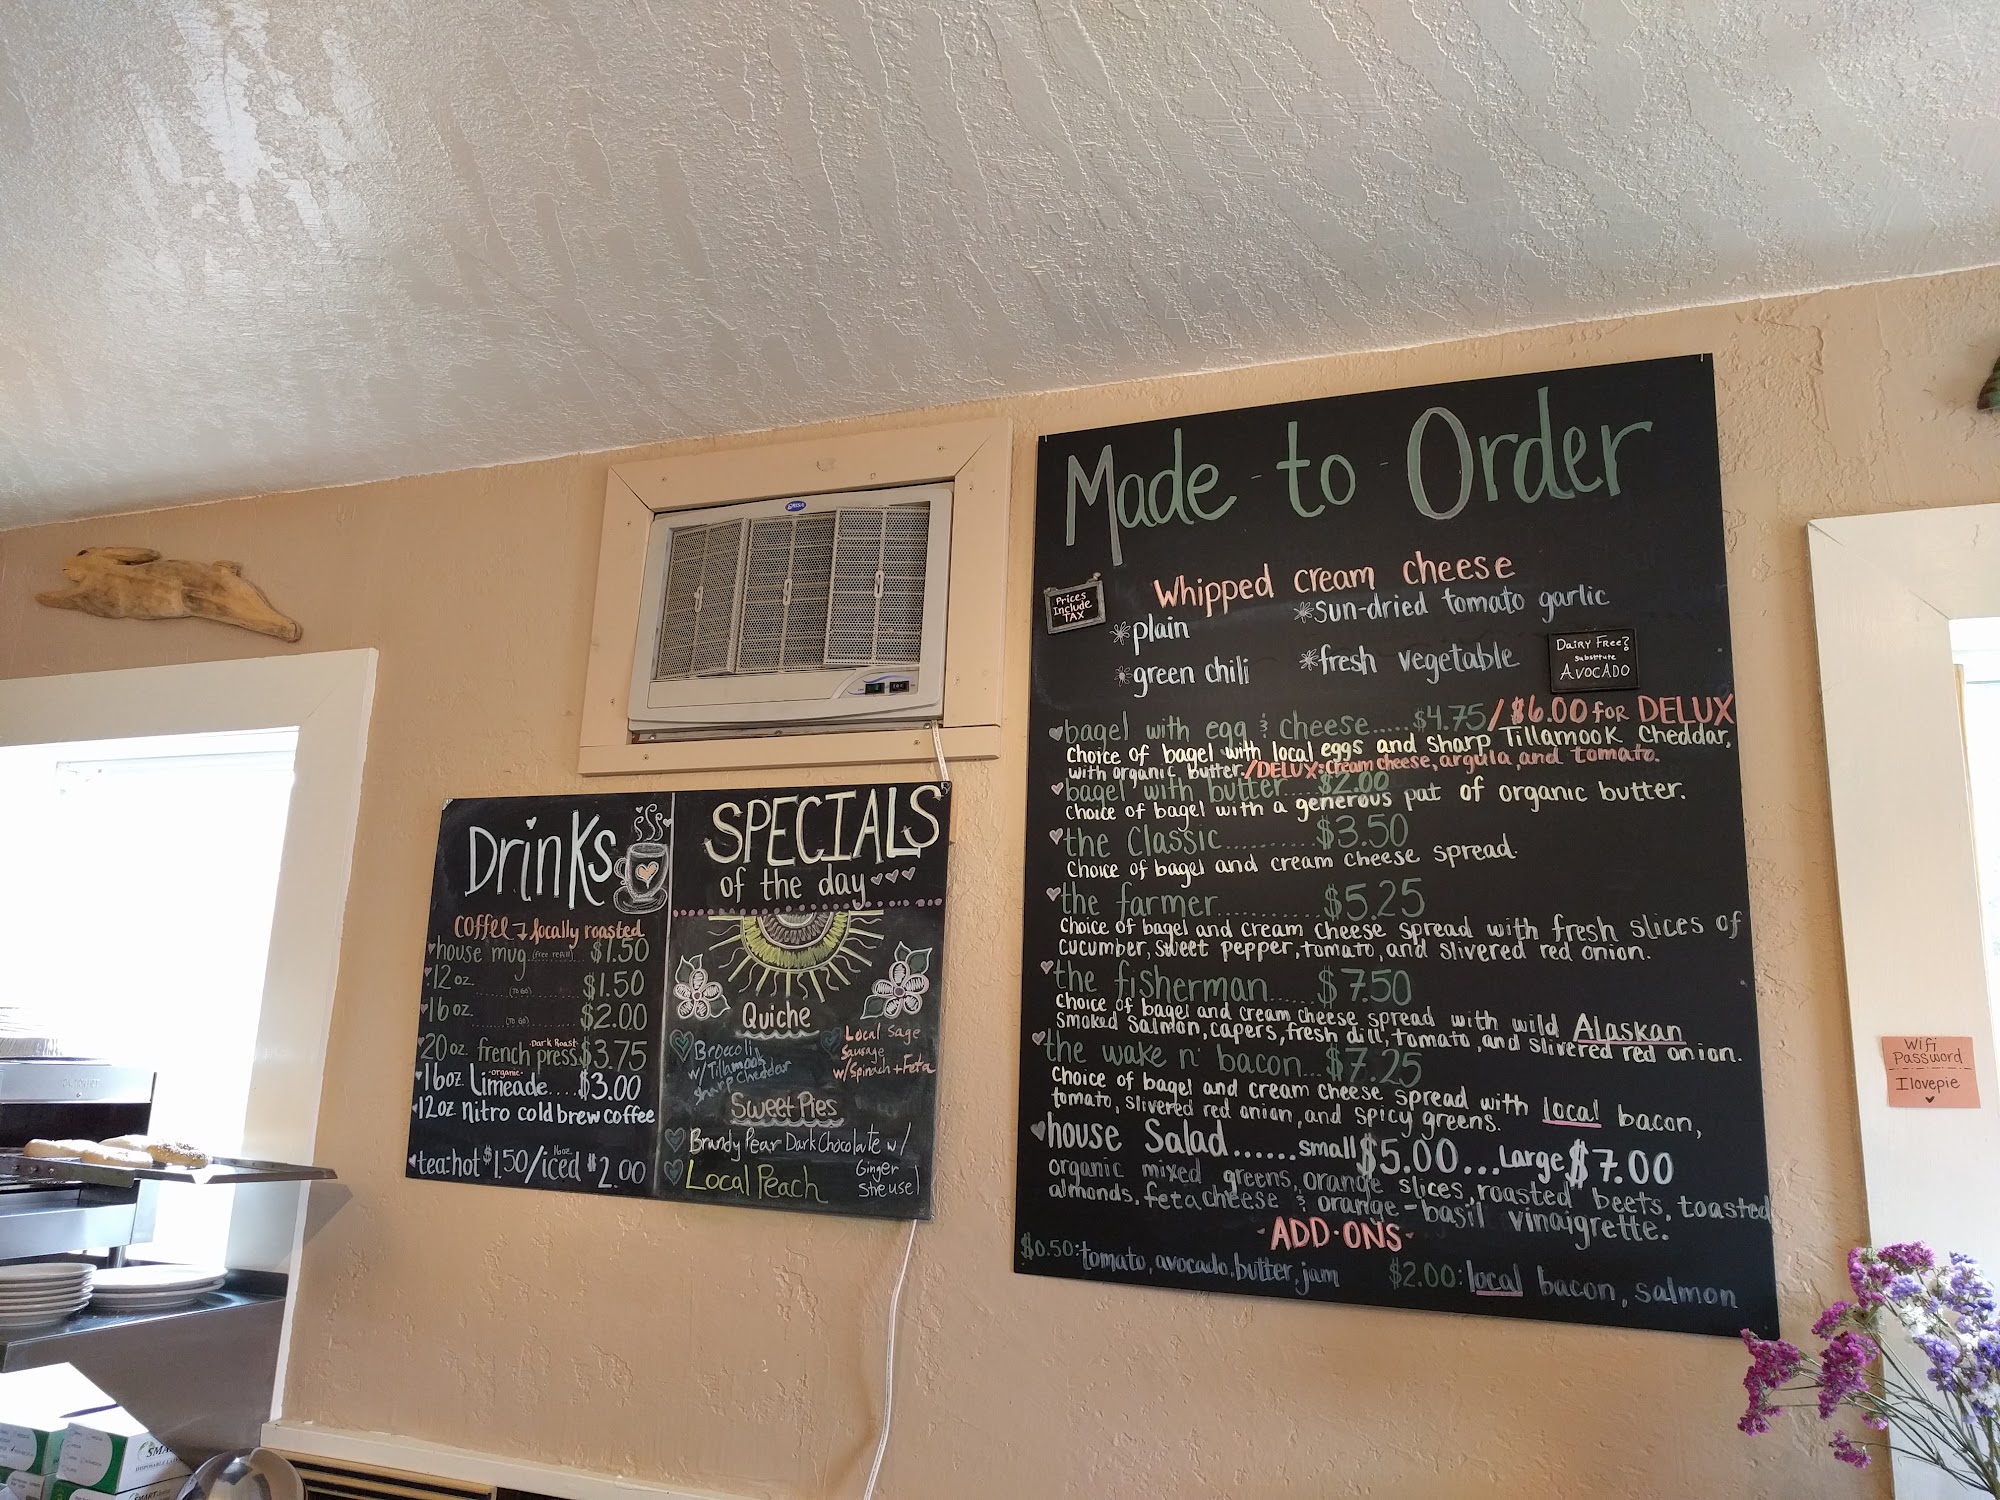 Drinks
coffee locally roasted
house mug (free refill) $1.50
12 oz. (TO GO) $1.50
16 oz. (TO GO) $2.00
Dark Roast
20 oz. french press $3.75
organic
16 oz. Limeade.... $3.00
12 oz. nitro cold brew coffee
16 oz.
tea: hot $1.50/iced $2.00
SPECIALS
of the day
Quiche
Broccoli
w/Tillamook
Sharp Cheddar
Local Sage
Sausage
w/Spinach + Feta
Sweet Pies
Brandy Pear Dark Chocolate w/
Ginger
Streusel
Local Peach
Made - to - Order
Prices
Include
TAX
Whipped cream cheese
plain
sun-dried tomato garlic
green chili
fresh vegetable
DAIRY FREE?
substitute
AVOCADO
bagel with egg & cheese.....$4.75/$6.00 for DELUX
Choice of bagel with local eggs and sharp Tillamook Cheddar,
with organic butter./DELUX: cream cheese, argula, and tomato.
bagel with butter.....$2.00
Choice of bagel with a generous pat of organic butter.
the Classic.......... $3.50
Choice of bagel and cream cheese spread.
the farmer.......... $5.25
Choice of bagel and cream cheese spread with fresh slices of
cucumber, sweet pepper, tomato, and slivered red onion.
the fisherman...... $7.50
Choice of bagel and cream cheese spread with wild Alaskan
smoked salmon, capers, fresh dill, tomato, and slivered red onion.
the wake n' bacon...$7.25
Choice of bagel and cream cheese spread with Local bacon,
tomato, slivered red onion, and spicy greens.
house Salad......small $5.00...Large $7.00
organic mixed greens, orange slices, roasted beets, toasted
almonds, feta cheese & orange-basil vinaigrette.
ADD-ONS
$0.50: tomato, avocado, butter, jam
$2.00: local bacon, salmon
Wifi
Password
Ilovepie